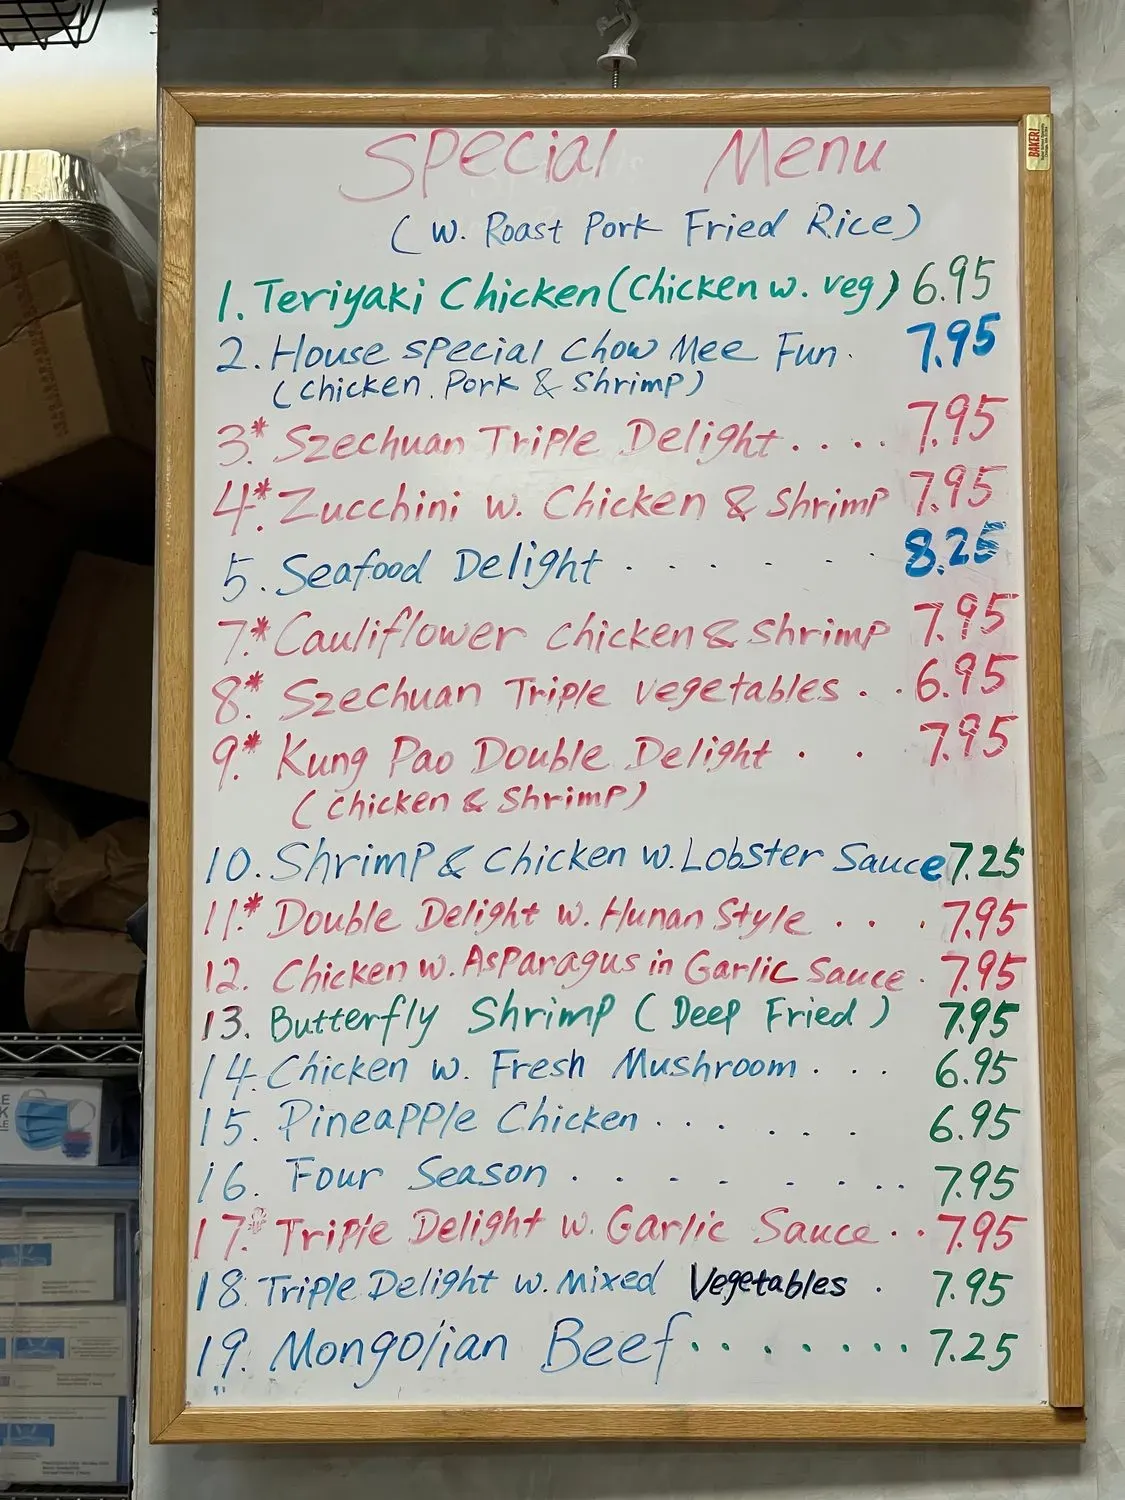 Special Menu
(W. Roast Pork Fried Rice)
1. Teriyaki Chicken (Chicken w. veg) 6.95
2. House special Chow Mee Fun. 7.95
(Chicken. Pork & Shrimp)
3.* Szechuan Triple Delight.... 7.95
4.* Zucchini w. Chicken & Shrimp 7.95
5. Seafood Delight ..... 8.25
7.* Cauliflower Chicken & Shrimp 7.95
8.* Szechuan Triple vegetables .. 6.95
9.* Kung Pao Double Delight .. 7.95
(Chicken & Shrimp)
10. Shrimp & Chicken w. Lobster Sauce 7.25
11.* Double Delight w. Hunan Style ... 7.95
12. Chicken w. Asparagus in Garlic Sauce . 7.95
13. Butterfly Shrimp (Deep Fried) 7.95
14. Chicken w. Fresh Mushroom ... 6.95
15. Pineapple Chicken ..... 6.95
16. Four Season ........ 7.95
17.* Triple Delight w. Garlic Sauce .. 7.95
18. Triple Delight w. Mixed Vegetables . 7.95
19. Mongolian Beef ........ 7.25